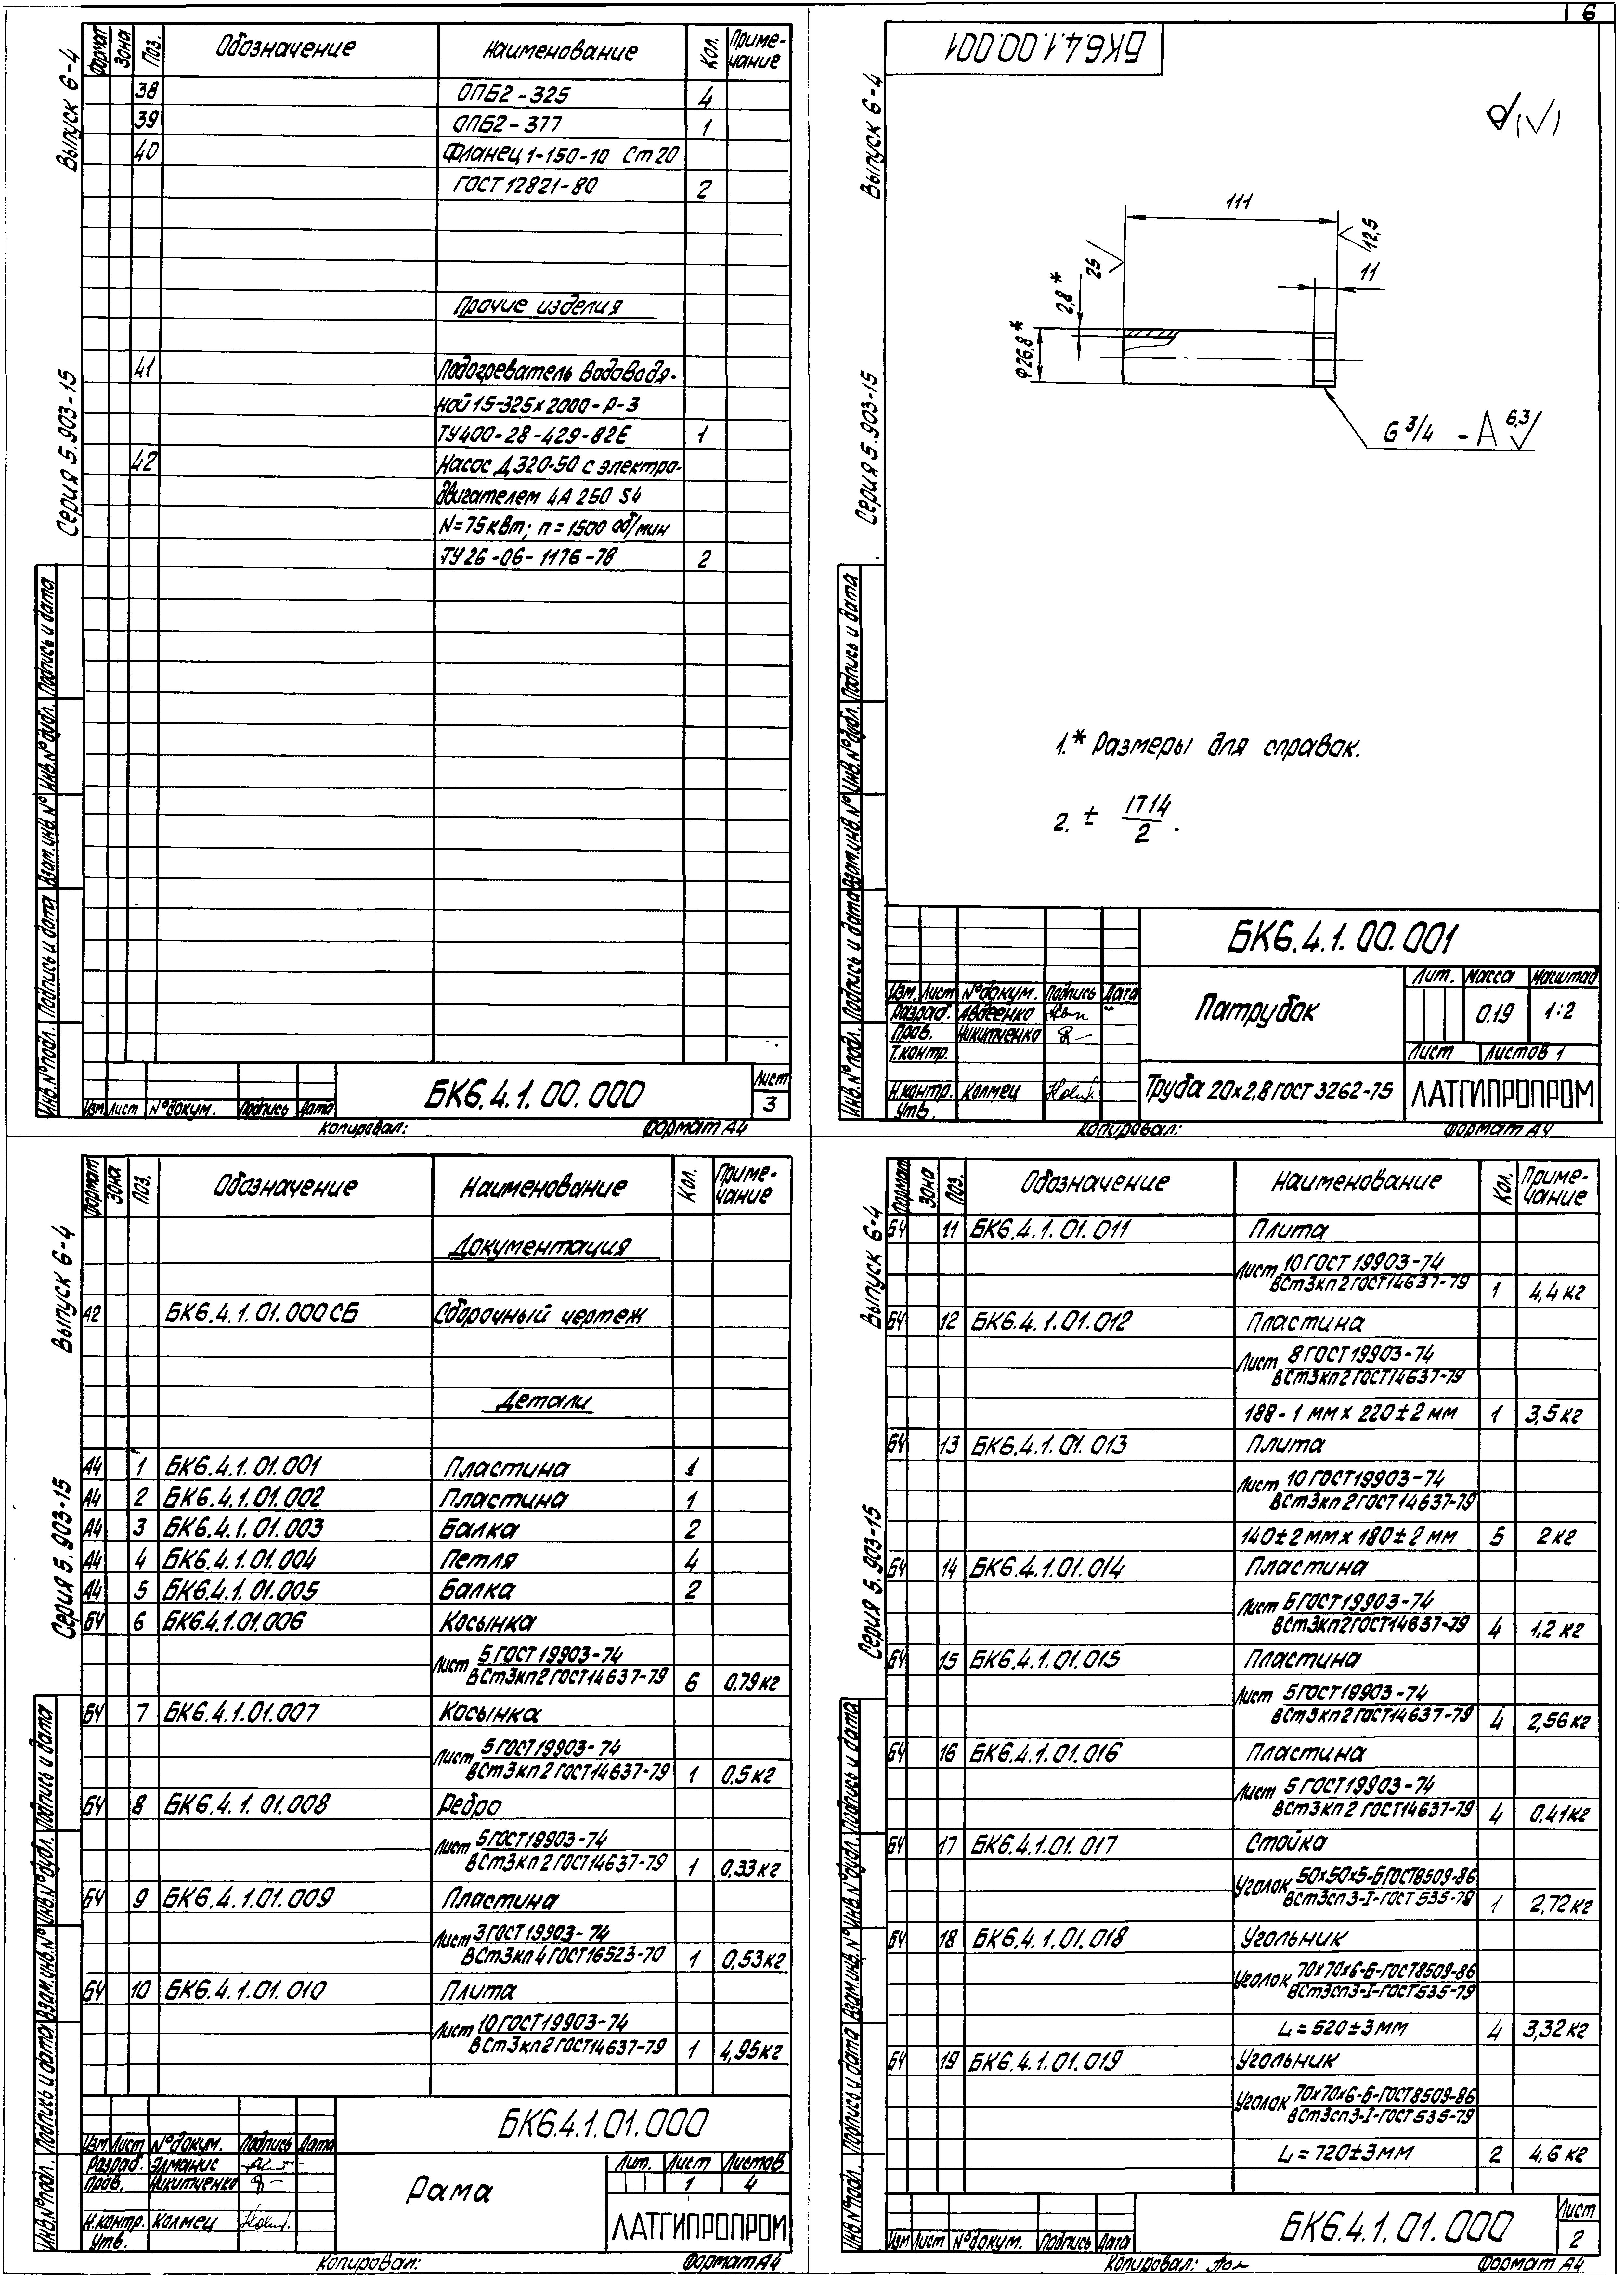 6
Выпуск 6-4
Серия 5.903-15
Формат Зона Поз. Обозначение Наименование Кол. Приме-
чание
38 ОПБ2-325 4
39 ОПБ2-377 1
40 Фланец 1-150-10 Ст20
ГОСТ 12821-80 2
Прочие изделия
41 Подогреватель водоводя-
ной 15-325х2000-Р-3
ТУ400-28-429-82Е 1
42 Насос Д320-50 с электро-
двигателем 4А 250 S4
N=75 квт; n=1500 об/мин
ТУ26-06-1176-78 2
Инв.№подл. Подпись и дата Взам.инв.№ Инв.№дубл. Подпись и дата
Изм. Лист №докум. Подпись Дата
БК6.4.1.00.000
Лист
3
Копировал: Формат А4
БК6.4.1.00.001
Выпуск 6-4
Серия 5.903-15
(√)
111
12,5
25
11
2,8*
Ф26,8*
G 3/4 - А 6,3
1.* Размеры для справок.
2. ± IT14/2.
Инв.№подл. Подпись и дата Взам.инв.№ Инв.№дубл. Подпись и дата
БК6.4.1.00.001
Изм. Лист №докум. Подпись Дата
Разраб. Авдеенко
Пров. Никитченко
Т.контр.
Н.контр. Колмец
Утв.
Патрубок
Лит. Масса Масштаб
0.19 1:2
Лист Листов 1
Труба 20х2,8 ГОСТ 3262-75
ЛАТГИПРОПРОМ
Копировал: Формат А4
Выпуск 6-4
Серия 5.903-15
Формат Зона Поз. Обозначение Наименование Кол. Приме-
чание
Документация
А2 БК6.4.1.01.000СБ Сборочный чертеж
Детали
А4 1 БК6.4.1.01.001 Пластина 1
А4 2 БК6.4.1.01.002 Пластина 1
А4 3 БК6.4.1.01.003 Балка 2
А4 4 БК6.4.1.01.004 Петля 4
А4 5 БК6.4.1.01.005 Балка 2
БЧ 6 БК6.4.1.01.006 Косынка
Лист 5 ГОСТ 19903-74
ВСт3кп2 ГОСТ14637-79 6 0.79кг
БЧ 7 БК6.4.1.01.007 Косынка
Лист 5 ГОСТ 19903-74
ВСт3кп2 ГОСТ14637-79 1 0,5кг
БЧ 8 БК6.4.1.01.008 Ребро
Лист 5 ГОСТ 19903-74
ВСт3кп2 ГОСТ14637-79 1 0,33кг
БЧ 9 БК6.4.1.01.009 Пластина
Лист 3 ГОСТ 19903-74
ВСт3кп4 ГОСТ16523-70 1 0,53кг
БЧ 10 БК6.4.1.01.010 Плита
Лист 10 ГОСТ 19903-74
ВСт3кп2 ГОСТ14637-79 1 4,95кг
Инв.№подл. Подпись и дата Взам.инв.№ Инв.№дубл. Подпись и дата
БК6.4.1.01.000
Изм. Лист №докум. Подпись Дата
Разраб. Элманис
Пров. Никитченко
Н.контр. Колмец
Утв.
Рама
Лит. Лист Листов
1 4
ЛАТГИПРОПРОМ
Копировал: Формат А4
Выпуск 6-4
Серия 5.903-15
Формат Зона Поз. Обозначение Наименование Кол. Приме-
чание
БЧ 11 БК6.4.1.01.011 Плита
Лист 10 ГОСТ 19903-74
ВСт3кп2 ГОСТ14637-79 1 4,4кг
БЧ 12 БК6.4.1.01.012 Пластина
Лист 8 ГОСТ 19903-74
ВСт3кп2 ГОСТ14637-79
188-1 мм х 220±2 мм 1 3,5кг
БЧ 13 БК6.4.1.01.013 Плита
Лист 10 ГОСТ 19903-74
ВСт3кп2 ГОСТ14637-79
140±2 мм х 180±2 мм 5 2кг
БЧ 14 БК6.4.1.01.014 Пластина
Лист 6 ГОСТ 19903-74
ВСт3кп2 ГОСТ14637-79 4 1,2кг
БЧ 15 БК6.4.1.01.015 Пластина
Лист 5 ГОСТ 19903-74
ВСт3кп2 ГОСТ14637-79 4 2,56кг
БЧ 16 БК6.4.1.01.016 Пластина
Лист 5 ГОСТ 19903-74
ВСт3кп2 ГОСТ14637-79 4 0,41кг
БЧ 17 БК6.4.1.01.017 Стойка
Уголок 50х50х5-Б ГОСТ8509-86
ВСт3сп3-I-ГОСТ 535-79 1 2,72кг
БЧ 18 БК6.4.1.01.018 Угольник
Уголок 70х70х6-Б-ГОСТ8509-86
ВСт3сп3-I-ГОСТ535-79
L=520±3мм 4 3,32кг
БЧ 19 БК6.4.1.01.019 Угольник
Уголок 70х70х6-Б-ГОСТ8509-86
ВСт3сп3-I-ГОСТ535-79
L=720±3мм 2 4,6кг
Инв.№подл. Подпись и дата Взам.инв.№ Инв.№дубл. Подпись и дата
Изм Лист №докум. Подпись Дата
БК6.4.1.01.000
Лист
2
Копировал: Формат А4